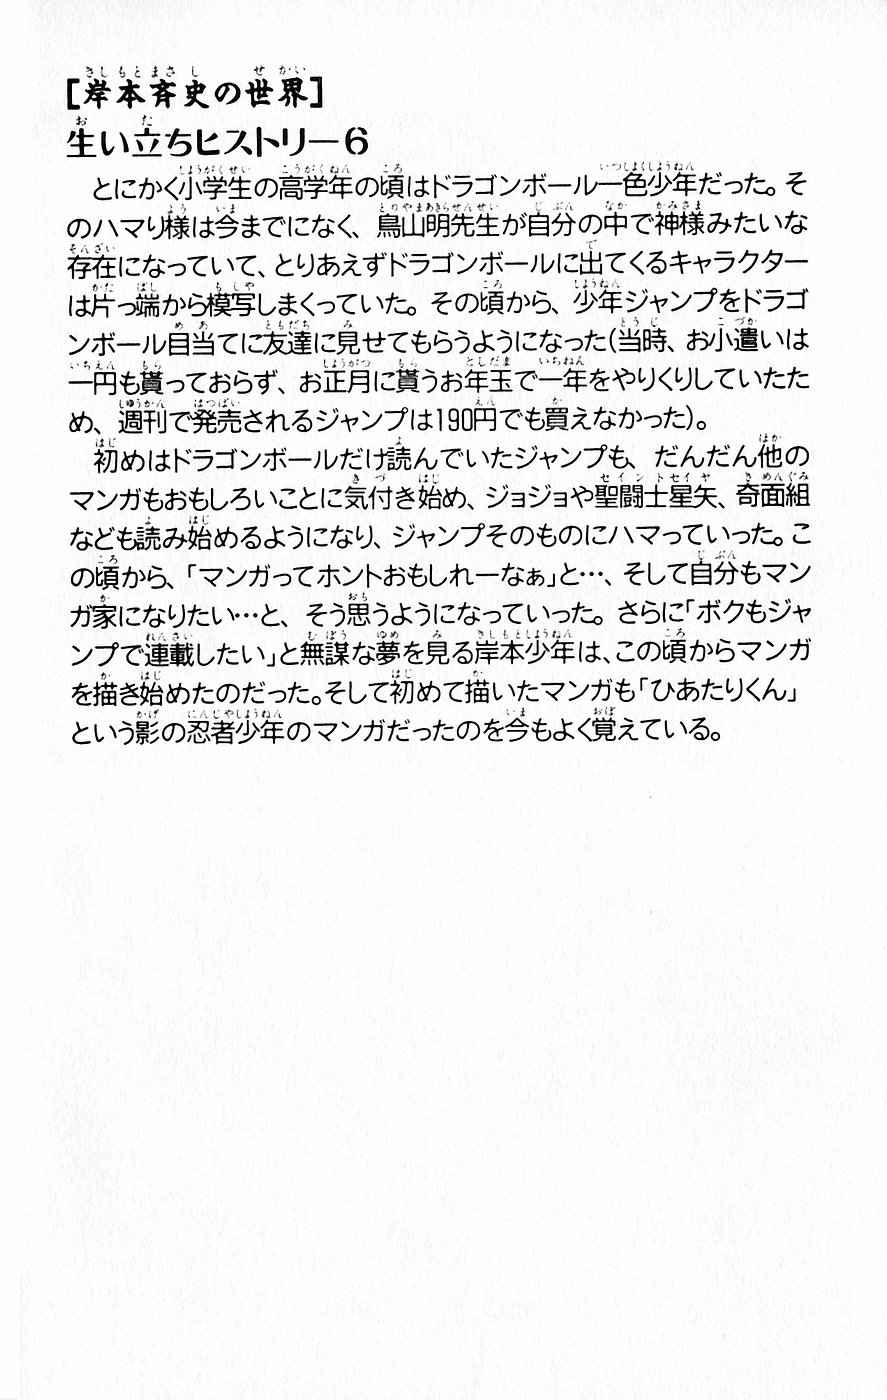 [岸本斉史の世界]
生い立ちヒストリー6
とにかく小学生の高学年の頃はドラゴンボール一色少年だった。そ
のハマり様は今までになく、鳥山明先生が自分の中で神様みたいな
存在になっていて、とりあえずドラゴンボールに出てくるキャラクター
は片っ端から模写しまくっていた。その頃から、少年ジャンプをドラゴ
ンボール目当てに友達に見せてもらうようになった(当時、お小遣いは
一円も貰っておらず、お正月に貰うお年玉で一年をやりくりしていたた
め、週刊で発売されるジャンプは190円でも買えなかった)。
初めはドラゴンボールだけ読んでいたジャンプも、だんだん他の
マンガもおもしろいことに気付き始め、ジョジョや聖闘士星矢、奇面組
なども読み始めるようになり、ジャンプそのものにハマっていった。こ
の頃から、「マンガってホントおもしれーなぁ」と…、そして自分もマン
ガ家になりたい…と、そう思うようになっていった。さらに「ボクもジャ
ンプで連載したい」と無謀な夢を見る岸本少年は、この頃からマンガ
を描き始めたのだった。そして初めて描いたマンガも「ひあたりくん」
という影の忍者少年のマンガだったのを今もよく覚えている。